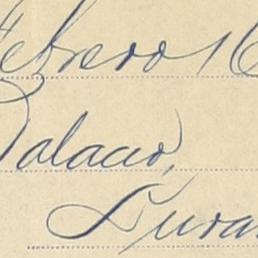 Febrero 1
Palacio,
Duran